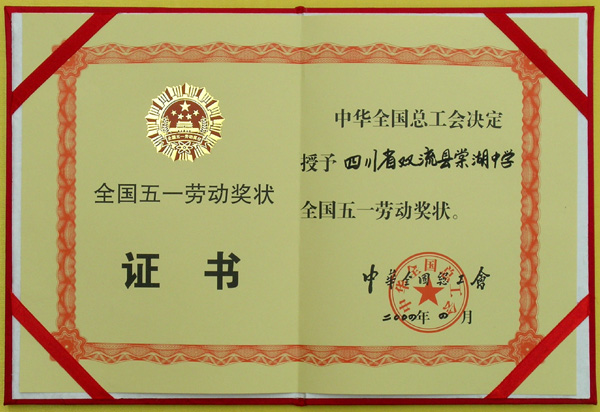 全国五一劳动奖状
证 书
中华全国总工会决定
授予 四川省双流县棠湖中学
全国五一劳动奖状。
中華全國總工會
中华全国总工会
二〇〇四年 四 月